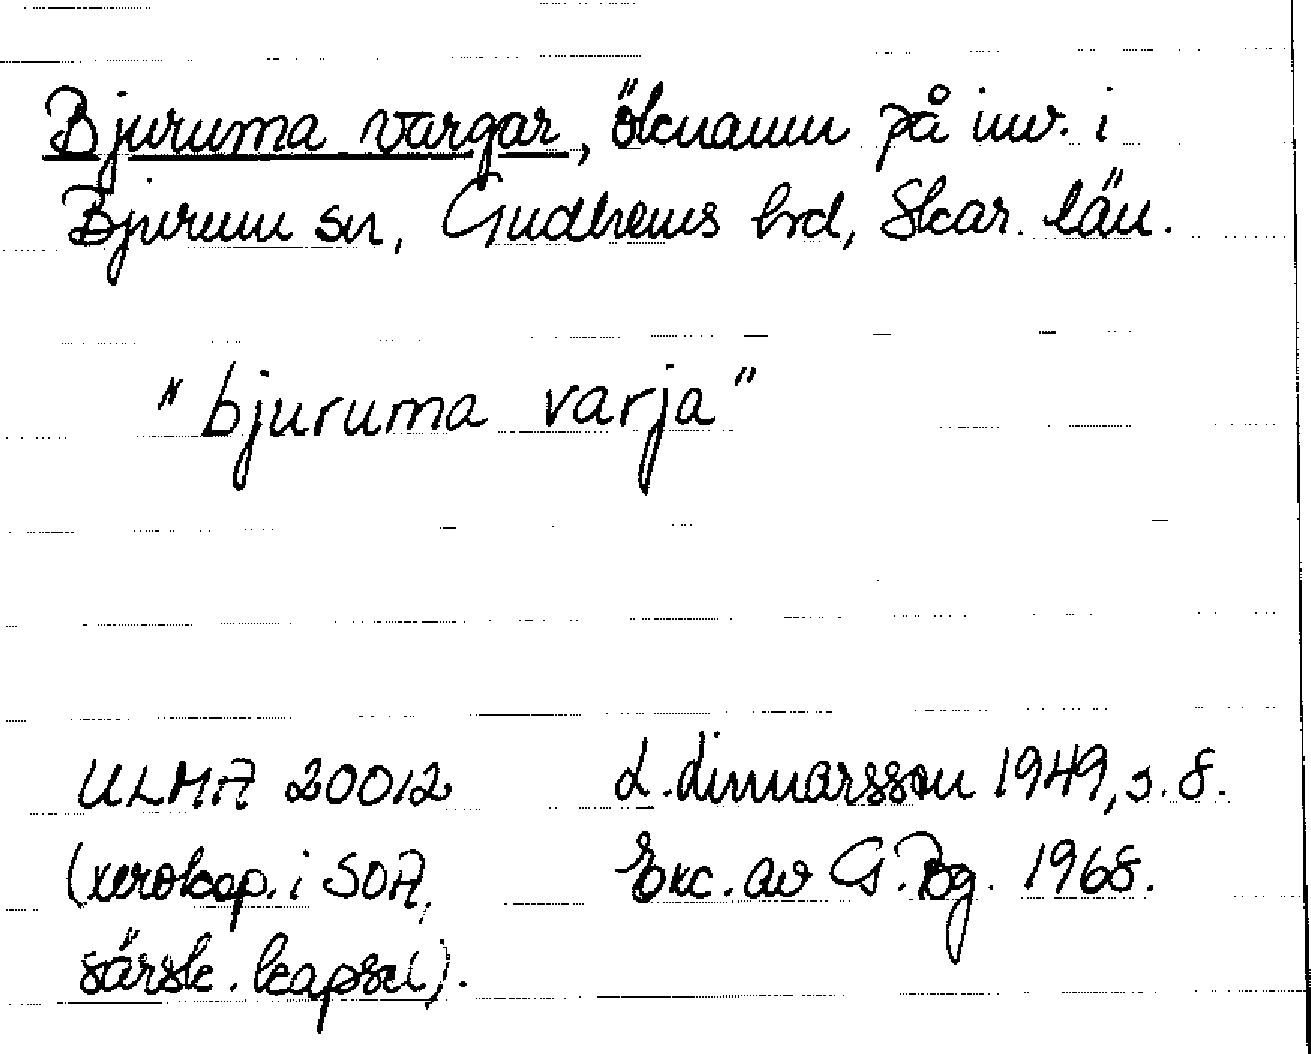 Bjuruma vargar, öknamn på inv. i
Bjurum sn, Gudhems hrd, Skar. län.
"bjuruma varja"
ULMA 20012 L. Linnarsson 1949, s. 8.
(xerokop. i SOA, Exc. av G. Bg. 1968.
särsk. kapsel).